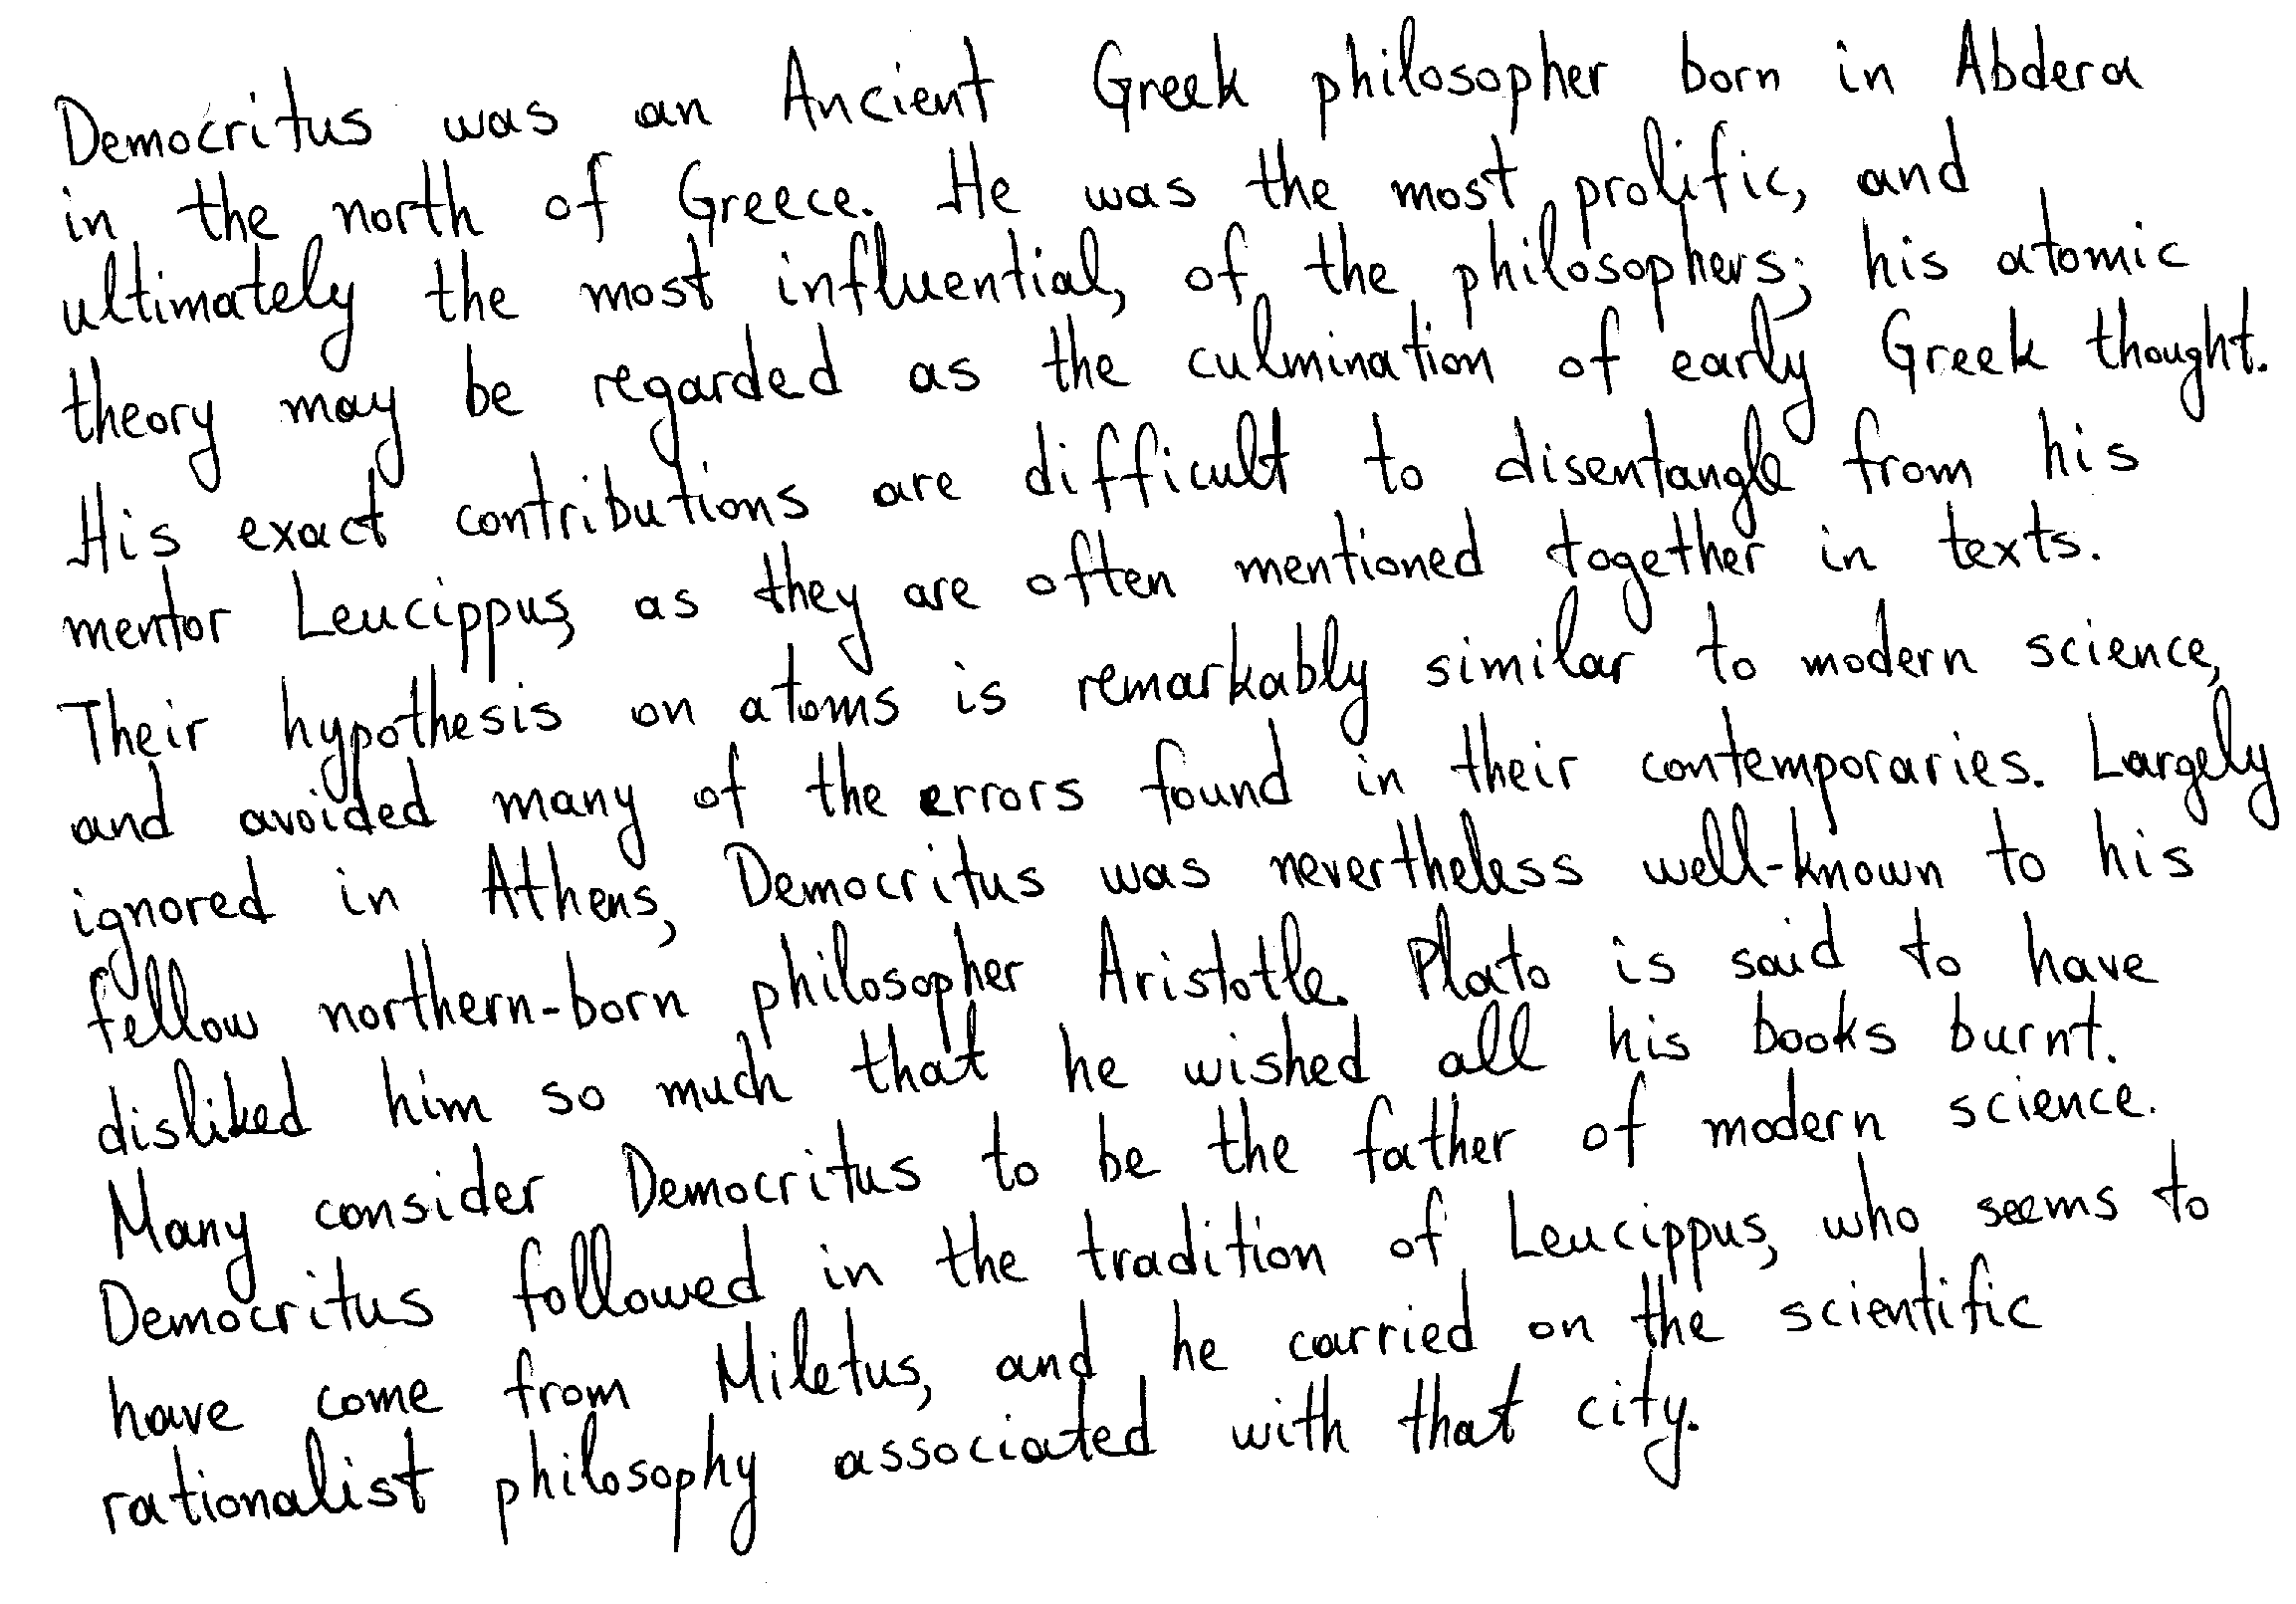 Democritus was an Ancient Greek philosopher born in Abdera
in the north of Greece. He was the most prolific, and
ultimately the most influential, of the philosophers; his atomic
theory may be regarded as the culmination of early Greek thought.
His exact contributions are difficult to disentangle from his
mentor Leucippus, as they are often mentioned together in texts.
Their hypothesis on atoms is remarkably similar to modern science,
and avoided many of the errors found in their contemporaries. Largely
ignored in Athens, Democritus was nevertheless well-known to his
fellow northern-born philosopher Aristotle. Plato is said to have
disliked him so much that he wished all his books burnt.
Many consider Democritus to be the father of modern science.
Democritus followed in the tradition of Leucippus, who seems to
have come from Miletus, and he carried on the scientific
rationalist philosophy associated with that city.